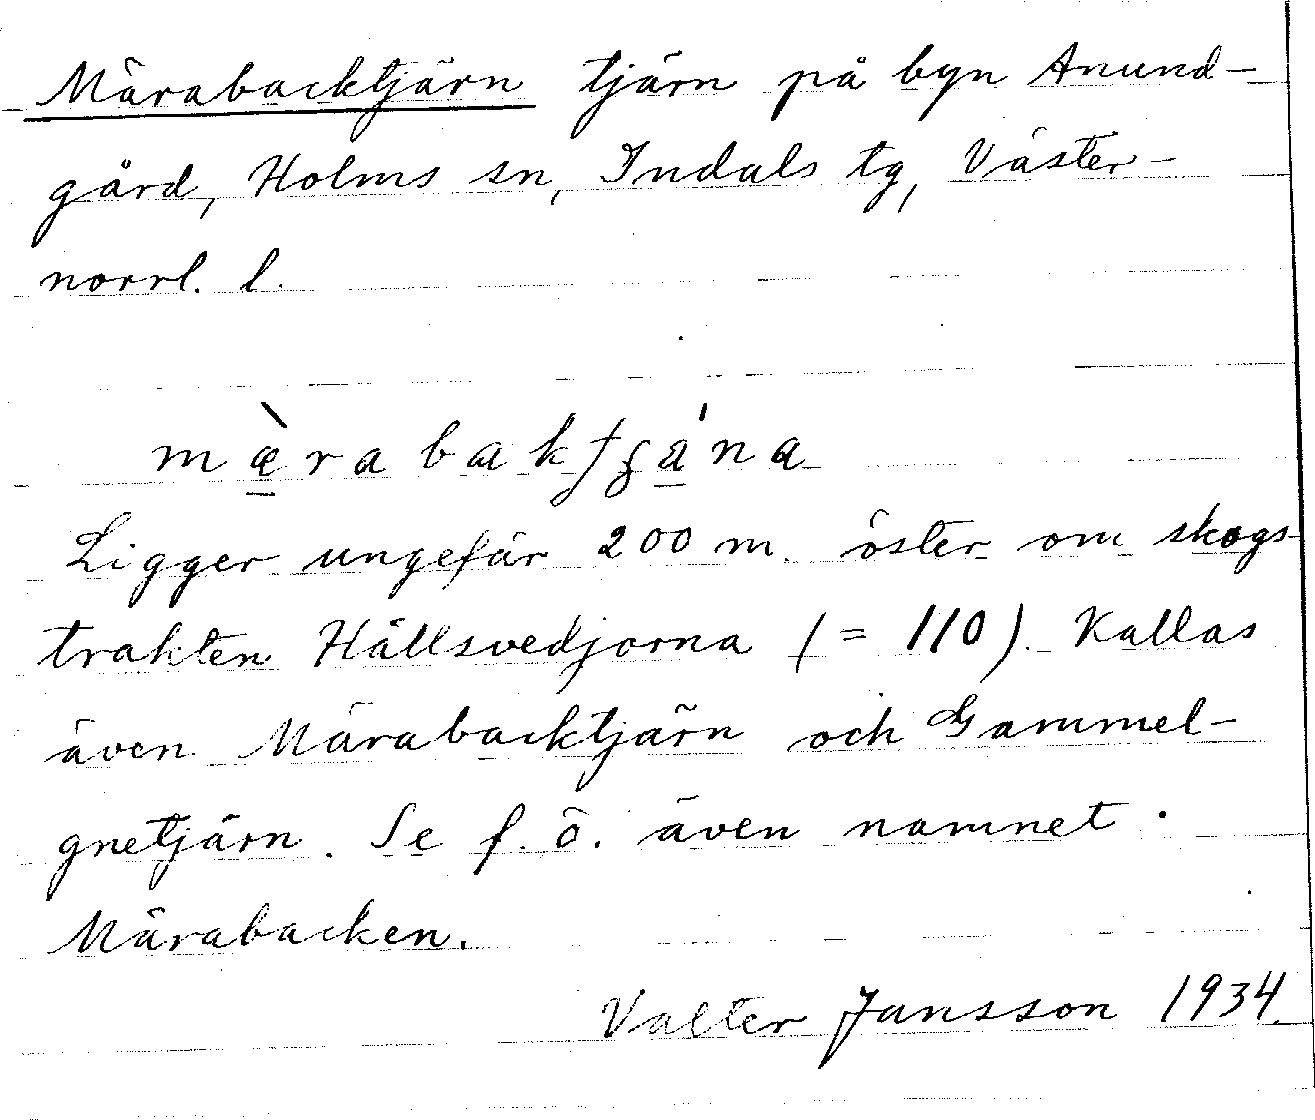 Märabacktjärn tjärn på byn Anund-
gård, Holms sn, Indals tg, Väster-
norrl. l.
mæ̀rabakʃɟánа
Ligger ungefär 200 m. öster om skogs-
trakten Hällsvedjorna (= 110). Kallas
även Märabacktjärn och Gammel-
gnetjärn. Se f. ö. även namnet
Märabacken.
Valter Jansson 1934.